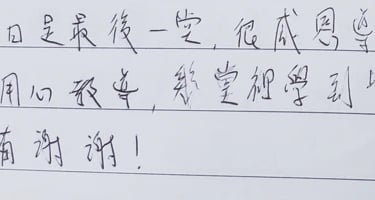 日是最後一堂,很感恩導
用心教導,整堂裡學到
謝謝!